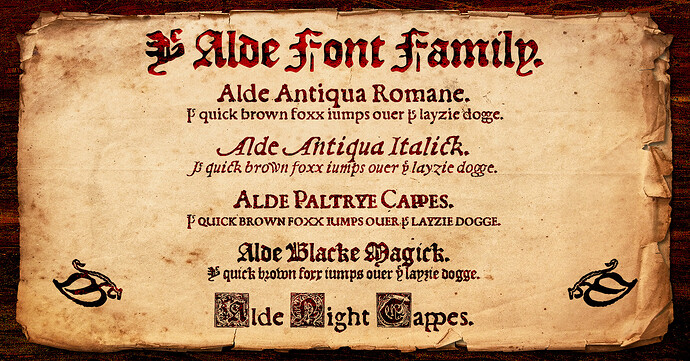 Yͤ Alde Font Family.
Alde Antiqua Romane.
Yͤ quick brown foxx iumps ouer yͤ layzie dogge.
Alde Antiqua Italick.
Yͤ quick brown foxx iumps ouer yͤ layzie dogge.
ALDE PALTRYE CAPPES.
Yͤ QUICK BROWN FOXX IUMPS OUER Yͤ LAYZIE DOGGE.
Alde Blacke Magick.
Yͤ quick brown foxx iumps ouer yͤ layzie dogge.
Alde Night Cappes.